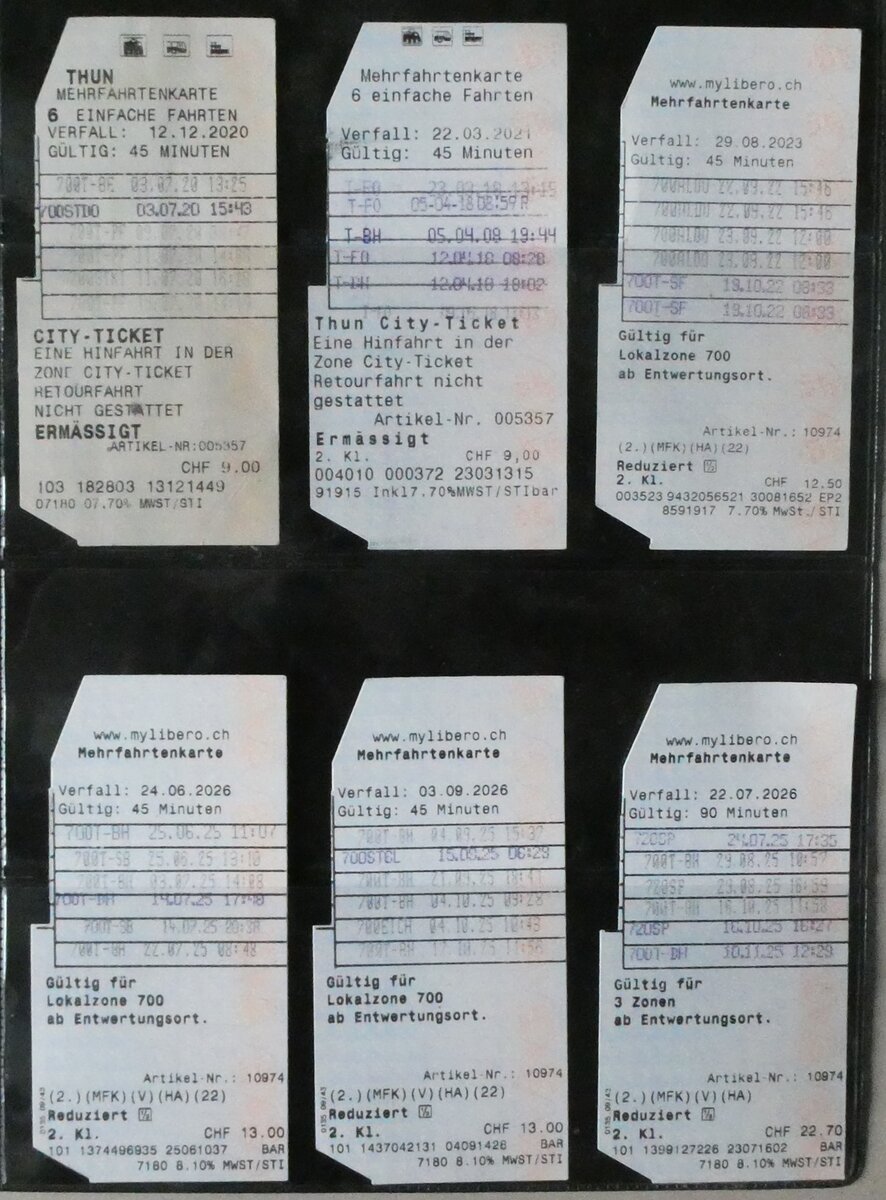 THUN
MEHRFAHRTENKARTE
6 EINFACHE FAHRTEN
VERFALL: 12.12.2020
GÜLTIG: 45 MINUTEN
700T-BE 03.07.20 13:25
700STDO 03.07.20 15:43
CITY-TICKET
EINE HINFAHRT IN DER
ZONE CITY-TICKET
RETOURFAHRT
NICHT GESTATTET
ERMÄSSIGT
ARTIKEL-NR:005357
CHF 9.00
103 182803 13121449
07180 07.70% MWST/STI
Mehrfahrtenkarte
6 einfache Fahrten
Verfall: 22.03.2021
Gültig: 45 Minuten
T-FO 23.03.18 13:15
T-FO 05-04-18 08:59
T-BH 05.04.08 19:44
T-FO 12.04.18 08:28
T-BH 12.04.18 18:02
Thun City-Ticket
Eine Hinfahrt in der
Zone City-Ticket
Retourfahrt nicht
gestattet
Artikel-Nr. 005357
Ermässigt
2. Kl. CHF 9,00
004010 000372 23031315
91915 Inkl7.70%MWST/STIbar
www.mylibero.ch
Mehrfahrtenkarte
Verfall: 29.08.2023
Gültig: 45 Minuten
700ALDO 22.09.22 15:46
700ALDO 22.09.22 15:46
700ALDO 23.09.22 12:00
700ALDO 23.09.22 12:00
700T-SF 19.10.22 08:33
700T-SF 19.10.22 08:33
Gültig für
Lokalzone 700
ab Entwertungsort.
Artikel-Nr.: 10974
(2.)(MFK)(HA)(22)
Reduziert ½
2. Kl. CHF 12.50
003523 9432056521 30081652 EP2
8591917 7.70% MwSt./STI
www.mylibero.ch
Mehrfahrtenkarte
Verfall: 24.06.2026
Gültig: 45 Minuten
700T-BH 25.06.25 11:07
700T-SB 25.06.25 13:10
700T-BH 03.07.25 14:08
700T-BH 14.07.25 17:48
700T-SB 14.07.25 20:38
700T-BH 22.07.25 08:48
Gültig für
Lokalzone 700
ab Entwertungsort.
Artikel-Nr.: 10974
(2.)(MFK)(V)(HA)(22)
Reduziert ½
2. Kl. CHF 13.00
101 1374496935 25061037 BAR
7180 8.10% MWST/STI
www.mylibero.ch
Mehrfahrtenkarte
Verfall: 03.09.2026
Gültig: 45 Minuten
700T-BH 04.09.25 15:37
700STGL 15.09.25 06:29
700T-BH 21.09.25 18:41
700T-BH 04.10.25 09:28
700EICH 04.10.25 10:43
700T-BH
Gültig für
Lokalzone 700
ab Entwertungsort.
Artikel-Nr.: 10974
(2.)(MFK)(V)(HA)(22)
Reduziert ½
2. Kl. CHF 13.00
101 1437042131 04091426 BAR
7180 8.10% MWST/STI
www.mylibero.ch
Mehrfahrtenkarte
Verfall: 22.07.2026
Gültig: 90 Minuten
720SP 24.07.25 17:35
700T-BH 29.08.25 10:57
720SP 29.08.25 16:59
700T-BH 16.10.25 11:58
720SP 16.10.25 16:27
700T-BH 10.11.25 12:29
Gültig für
3 Zonen
ab Entwertungsort.
Artikel-Nr.: 10974
(2.)(MFK)(V)(HA)
Reduziert ½
2. Kl. CHF 22.70
101 1399127226 23071602 BAR
7180 8.10% MWST/STI